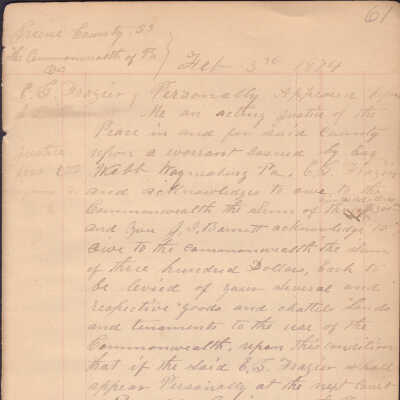 61
Greene County, SS
The Commonwealth of Pa
vs
Feb 3rd 1874
E. T. Frazier, Personally Appeared before
Me an acting Justice of the
Peace in and for said County
upon a warrant issued by Esq
Webb Waynesburg Pa. E. T. Frazier
and acknowledges to owe to the
Commonwealth the Sum of three
and you J. T. Barnett acknowledge to
owe to the commonwealth the sum
of three hundred Dollars, Each to
be levied of your several and
respective goods and chattels lands
and tenaments to the use of the
Commonwealth, upon this condition
that if the said E. T. Frazier shall
appear Personally at the next Court